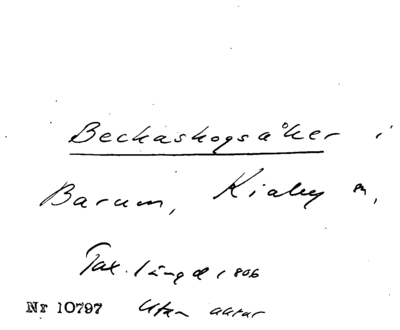 Beckaskogsåker i
Barum, Kiaby sn,
Tax.längd 1806
Nr 10797 Utan